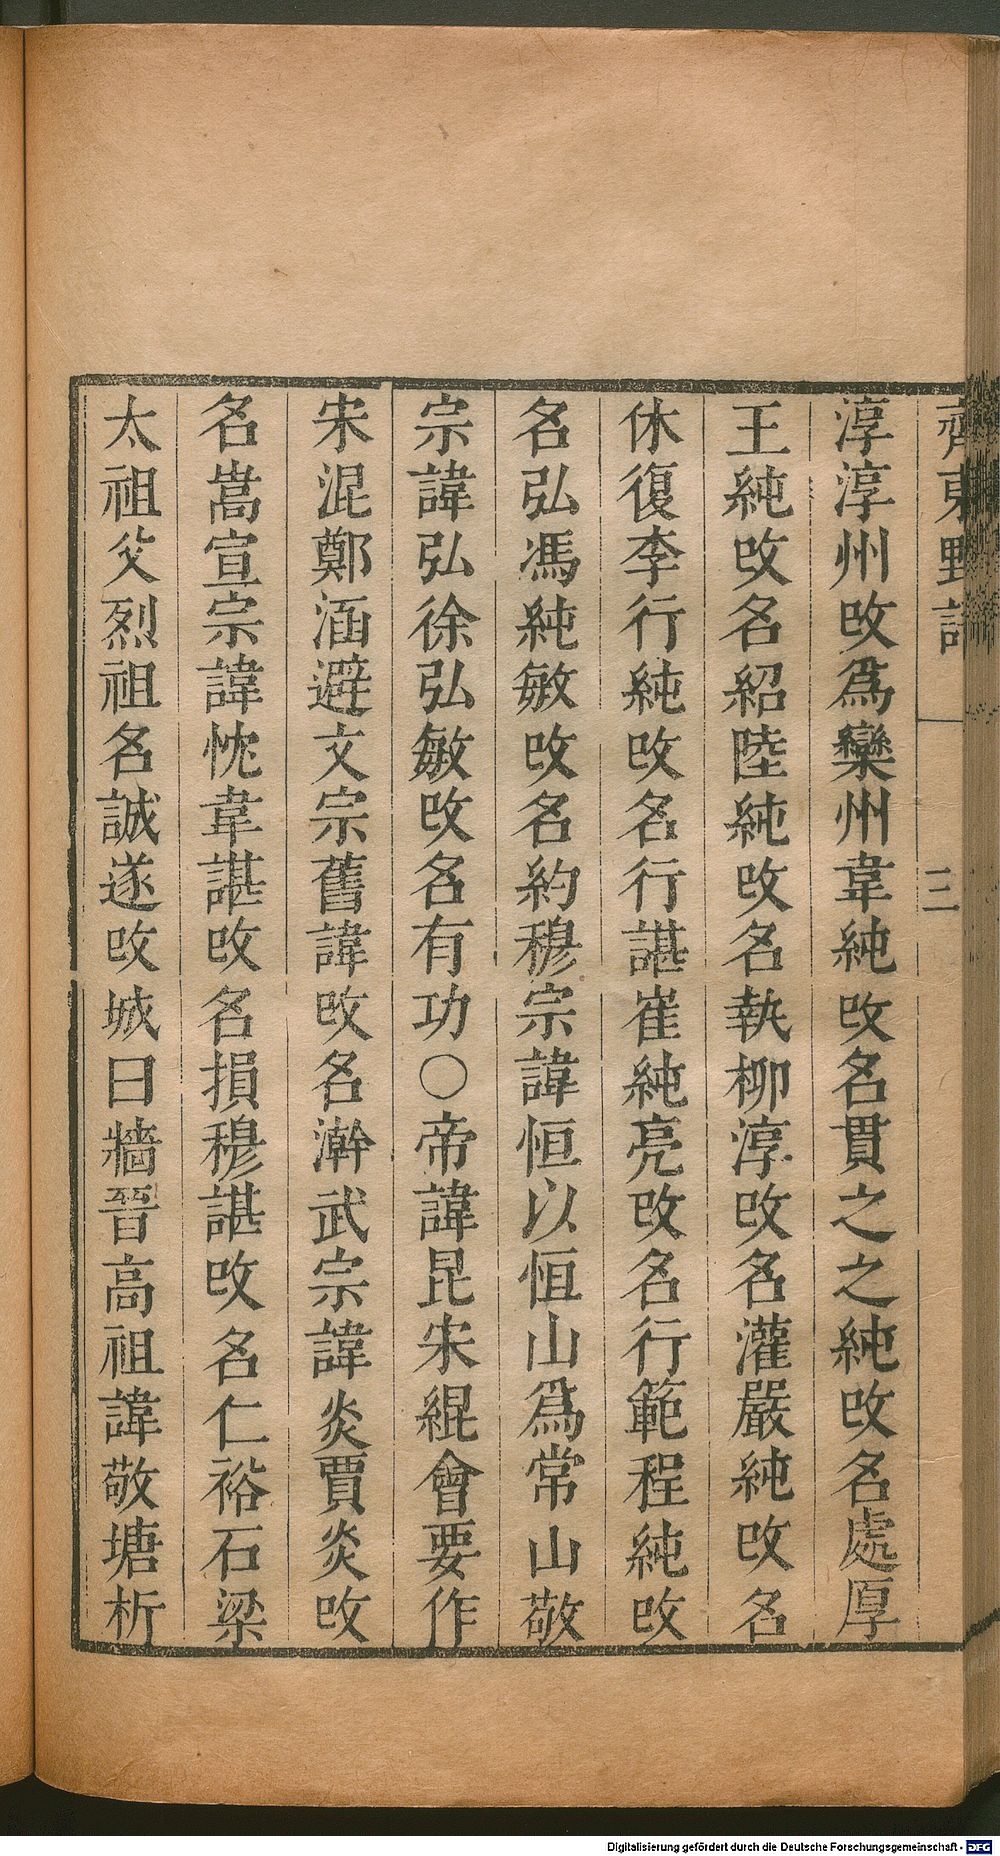 齊東野語
三
淳淳州攺爲欒州韋純攺名貫之之純攺名處厚
王純攺名紹陸純攺名執柳淳攺名灌嚴純攺名
休復李行純攺名行諶崔純亮攺名行範程純攺
名弘馮純敏攺名約穆宗諱恒以恒山爲常山敬
宗諱弘徐弘敏攺名有功○帝諱昆宋緄會要作
宋混鄭涵避文宗舊諱攺名澣武宗諱炎賈炎攺
名嵩宣宗諱忱韋諶攺名損穆諶攺名仁裕石梁
太祖父烈祖名誠遂攺城曰牆晉高祖諱敬塘析
Digitalisierung gefördert durch die Deutsche Forschungsgemeinschaft - DFG